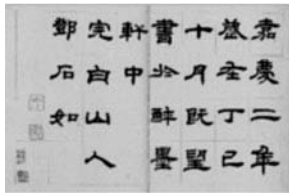 嘉慶二年
歲在丁巳
十月既望
書於醉墨
軒中
完白山人
鄧石如